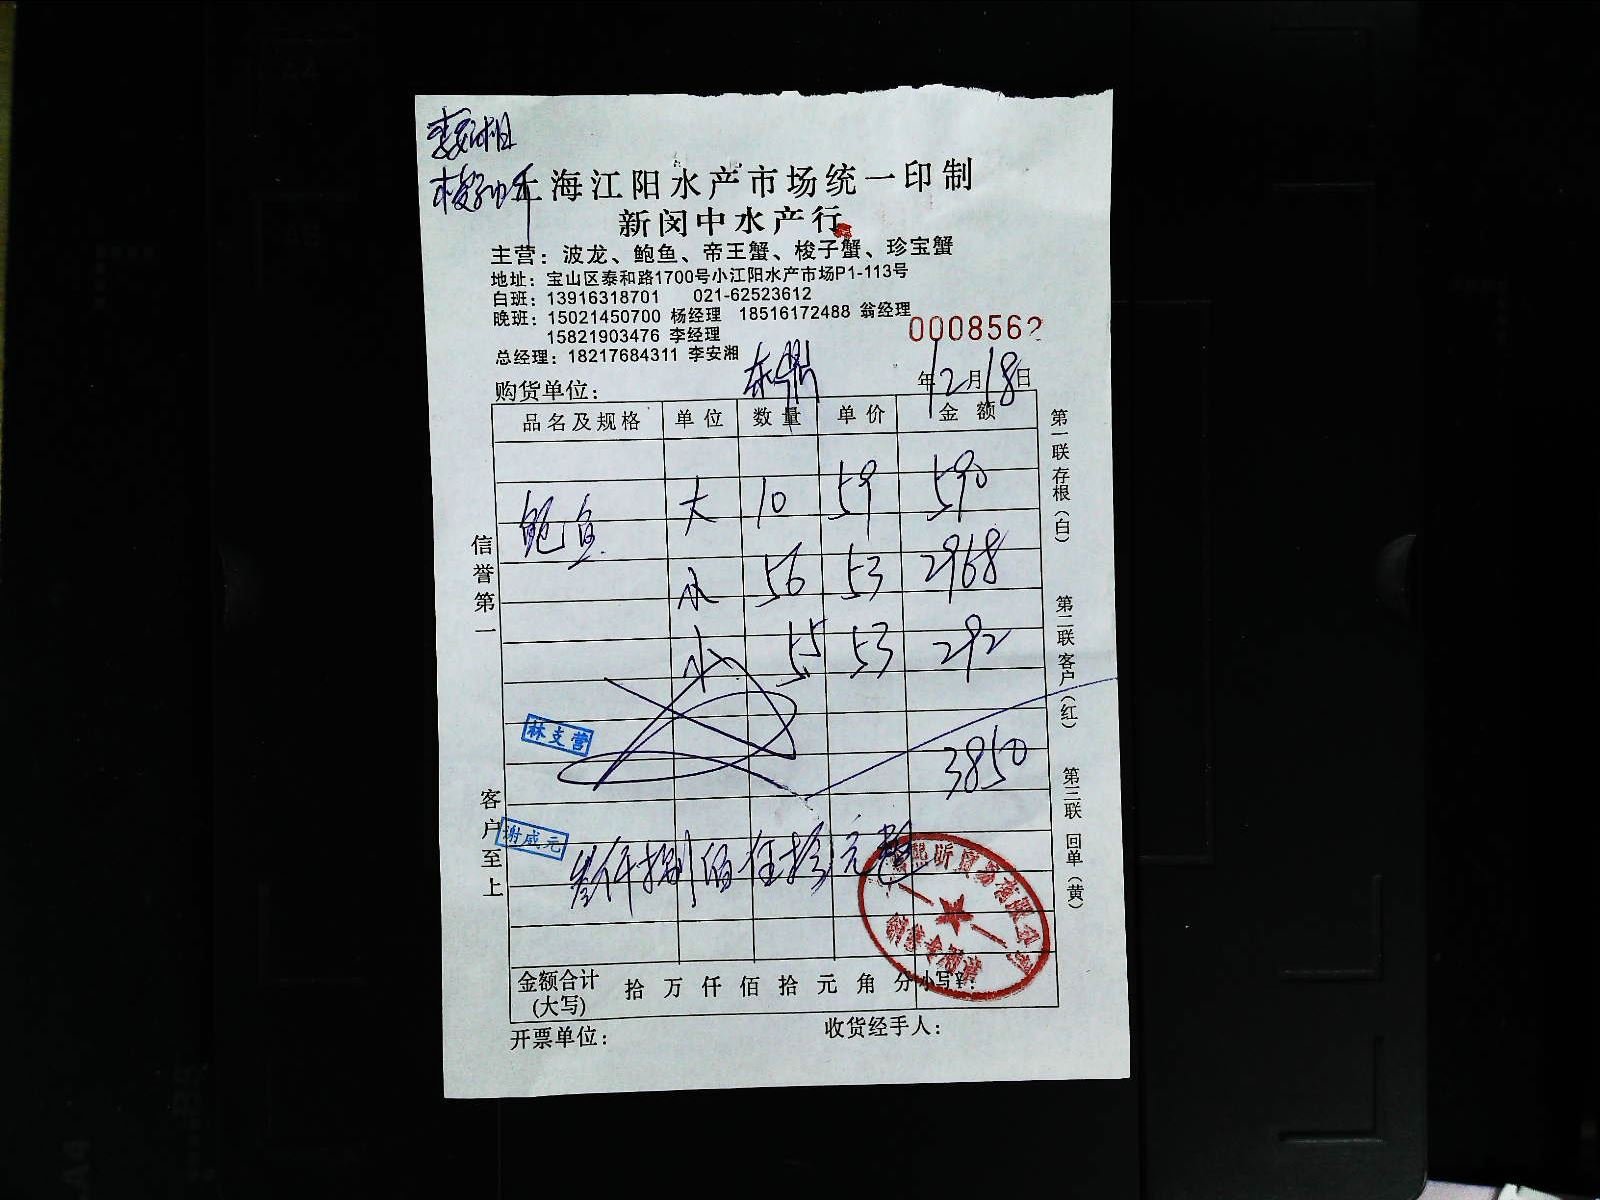 上海江阳水产市场统一印制
新闵中水产行
主营：波龙、鲍鱼、帝王蟹、梭子蟹、珍宝蟹
地址：宝山区泰和路1700号小江阳水产市场P1-113号
白班：13916318701 021-62523612
晚班：15021450700 杨经理 18516172488 翁经理
15821903476 李经理
0008562
总经理：18217684311 李安湘
购货单位： 年12月18日
品名及规格 单位 数量 单价 金额
鲍鱼 大 10 59 590
小 56 53 2968
小 5.5 53 292
3850
叁仟捌佰伍拾元整
林支营
谢咸元
信誉第一
客户至上
第一联 存根（白）
第二联 客户（红）
第三联 回单（黄）
熙昕贸易有限公司
销售专用章
金额合计(大写) 拾 万 仟 佰 拾 元 角 分 小写¥：
开票单位： 收货经手人：